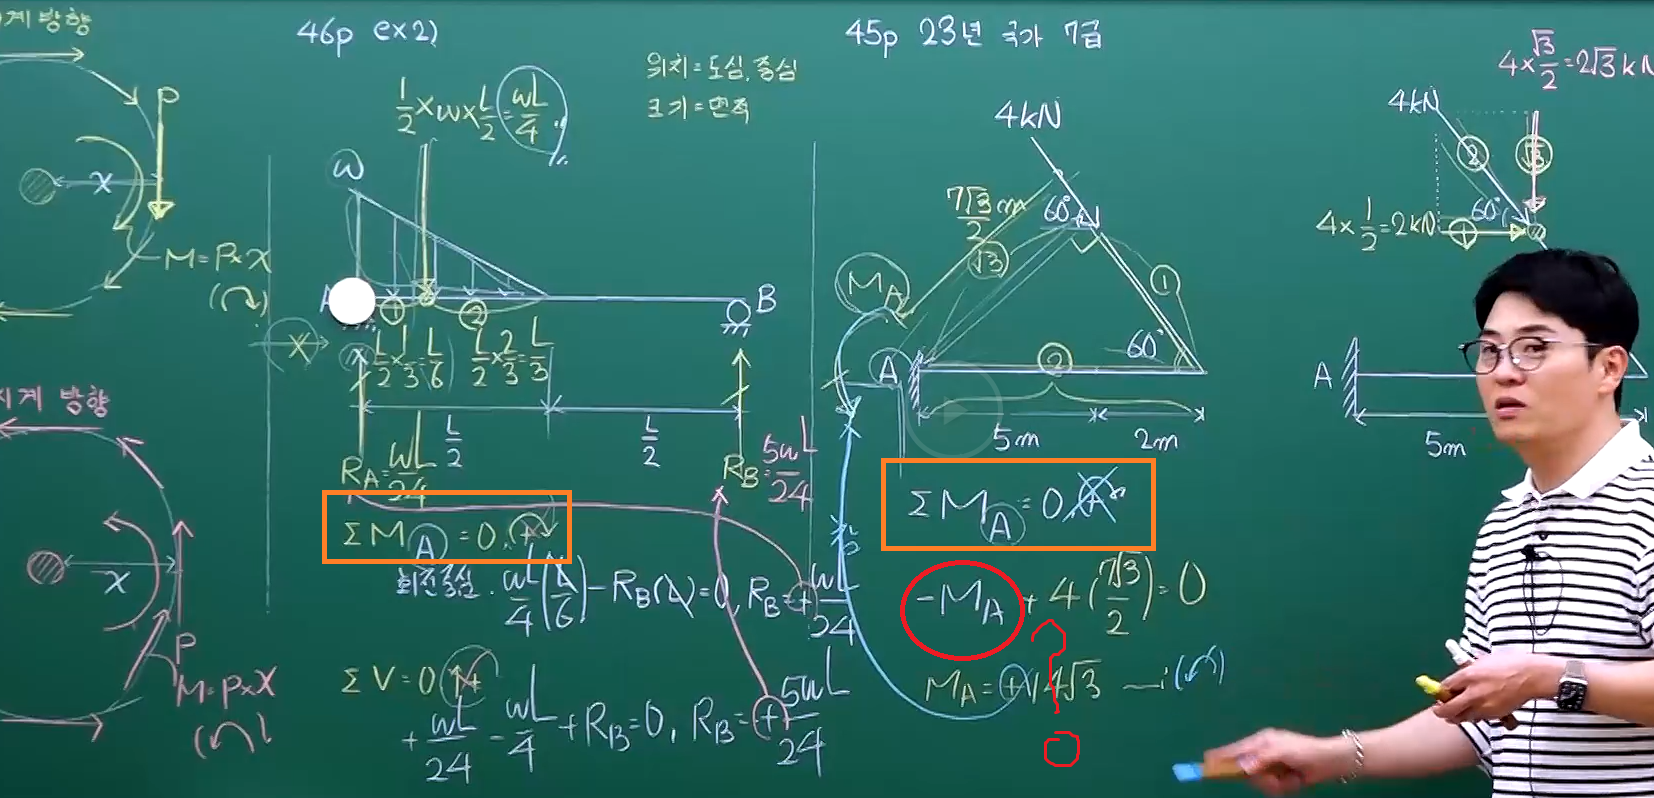 계 방향
P
x
M=P×x
시계 방향
x
P
M=P×x
46p ex2)
위치=도심, 중심
크기=면적
1/2×w×L/2=wL/4
w
A
B
① ②
L/2×1/3=L/6 L/2×2/3=L/3
x
L/2 L/2
R_A=wL/24
R_B=5wL/24
ΣM_A=0,+
회전중심. wL/4(L/6)-R_B(L)=0, R_B=+wL/24
ΣV=0 ↑+
+wL/24-wL/4+R_B=0, R_B=+5wL/24
45p 23년 국가 7급
4kN
7√3/2m
60°
√3
①
M_A
A
②
60°
5m 2m
ΣM_A=0,+
-M_A+4(7√3/2)=0
M_A=+14√3
4×√3/2=2√3kN
4kN
② √3
4×1/2=2kN
①
60°
A
5m